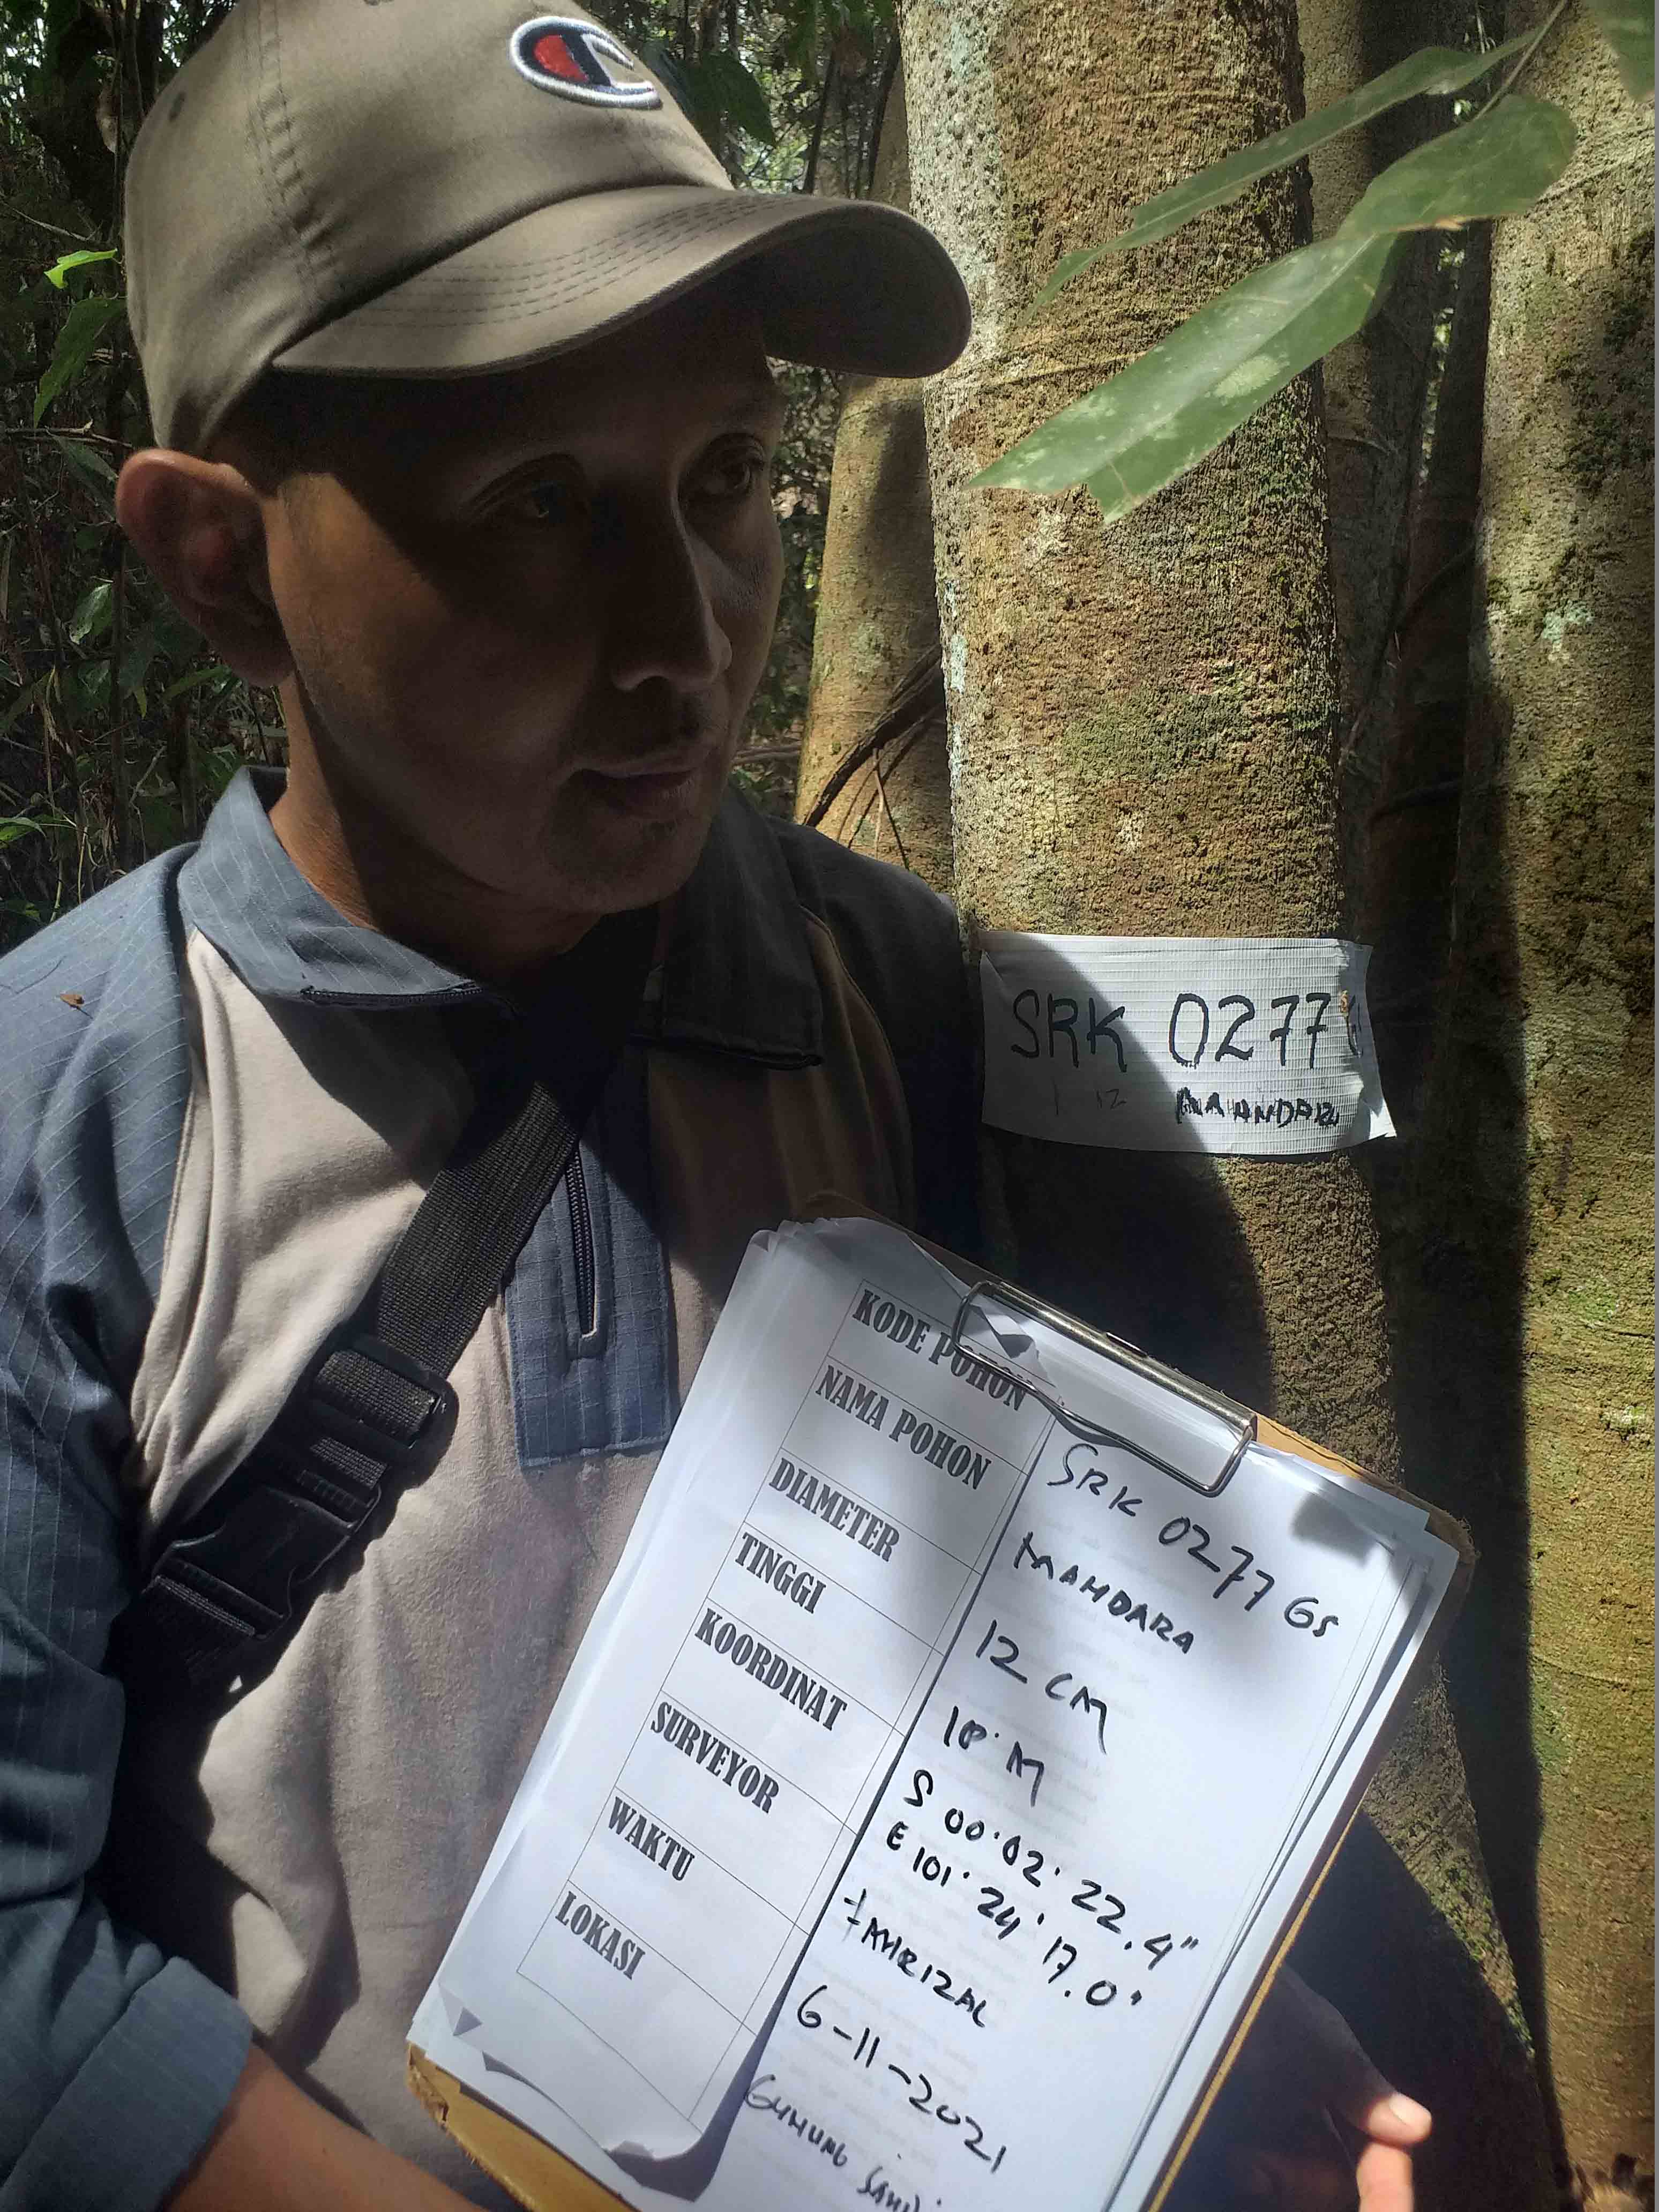 SRK 0277
MANDARA
KODE POHON SRK 0277 GS
NAMA POHON MANDARA
DIAMETER 12 CM
TINGGI 18 M
KOORDINAT S 00° 02' 22.4"
E 101° 24' 17.0"
SURVEYOR FAHRIZAL
WAKTU 6-11-2021
LOKASI GUNUNG SAHI